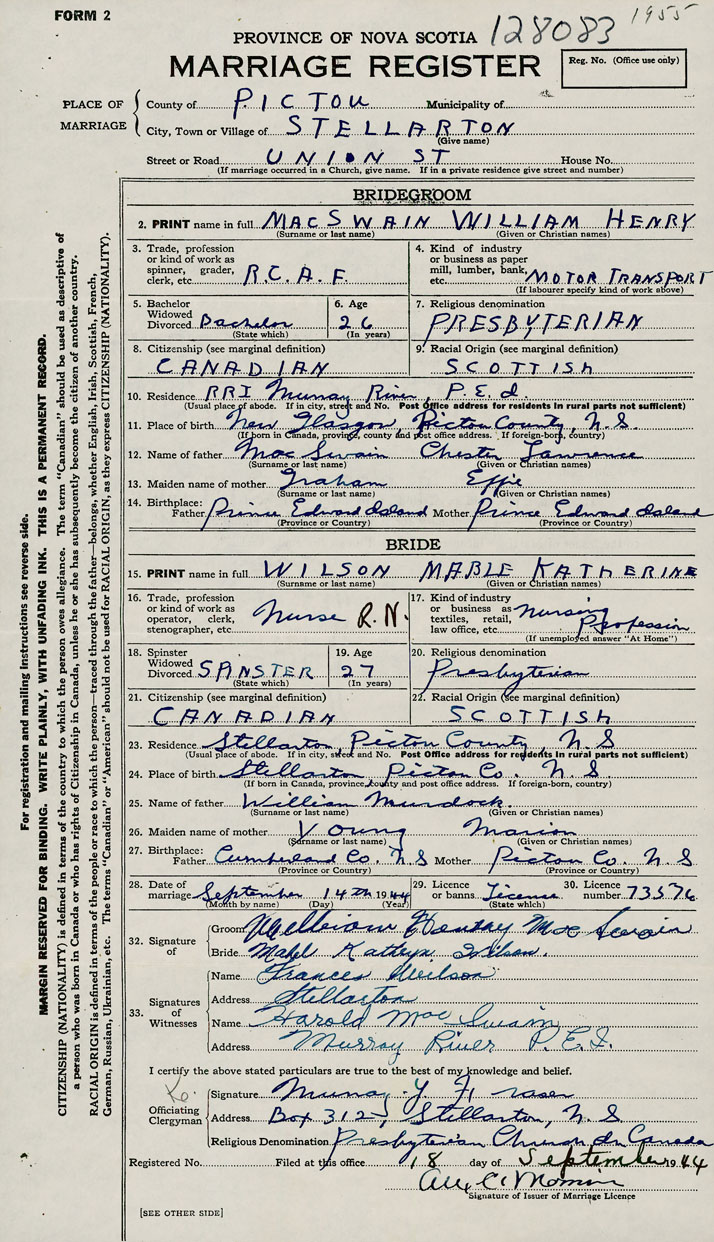 FORM 2
128083 1955
PROVINCE OF NOVA SCOTIA
MARRIAGE REGISTER
Reg. No. (Office use only)
PLACE OF MARRIAGE
County of PICTOU Municipality of
City, Town or Village of STELLARTON
(Give name)
Street or Road UNION ST House No.
(If marriage occurred in a Church, give name. If in a private residence give street and number)
BRIDEGROOM
2. PRINT name in full MACSWAIN WILLIAM HENRY
(Surname or last name) (Given or Christian names)
3. Trade, profession or kind of work as spinner, grader, clerk, etc. R.C.A.F.
4. Kind of industry or business as paper mill, lumber, bank, etc. MOTOR TRANSPORT
(If labourer specify kind of work above)
5. Bachelor Widowed Divorced Bachelor
(State which)
6. Age 26
(In years)
7. Religious denomination
PRESBYTERIAN
8. Citizenship (see marginal definition)
CANADIAN
9. Racial Origin (see marginal definition)
SCOTTISH
10. Residence RR1 Murray River, P.E.I.
(Usual place of abode. If in city, street and No. Post Office address for residents in rural parts not sufficient)
11. Place of birth New Glasgow, Pictou County, N.S.
(If born in Canada, province, county and post office address. If foreign-born, country)
12. Name of father Mac Swain Chester Lawrence
(Surname or last name) (Given or Christian names)
13. Maiden name of mother Graham Effie
(Surname or last name) (Given or Christian names)
14. Birthplace: Father Prince Edward Island Mother Prince Edward Island
(Province or Country) (Province or Country)
BRIDE
15. PRINT name in full WILSON MABLE KATHERINE
(Surname or last name) (Given or Christian names)
16. Trade, profession or kind of work as operator, clerk, stenographer, etc. Nurse R.N.
17. Kind of industry or business as textiles, retail, law office, etc. Nursing Profession
(If unemployed answer "At Home")
18. Spinster Widowed Divorced SPNSTER
(State which)
19. Age 27
(In years)
20. Religious denomination
Presbyterian
21. Citizenship (see marginal definition)
CANADIAN
22. Racial Origin (see marginal definition)
SCOTTISH
23. Residence Stellarton, Pictou County, N.S
(Usual place of abode. If in city, street and No. Post Office address for residents in rural parts not sufficient)
24. Place of birth Stellarton, Pictou Co. N.S.
(If born in Canada, province, county and post office address. If foreign-born, country)
25. Name of father William Murdock
(Surname or last name) (Given or Christian names)
26. Maiden name of mother Young Marion
(Surname or last name) (Given or Christian names)
27. Birthplace: Father Cumberland Co. N.S Mother Pictou Co. N.S
(Province or Country) (Province or Country)
28. Date of marriage September 14th 1944
(Month by name) (Day) (Year)
29. Licence or banns License
(State which)
30. Licence number 73576
32. Signature of
Groom William Henry Mac Swain
Bride Mabel Kathryn Wilson.
33. Signatures of Witnesses
Name Frances Wilson
Address Stellarton
Name Harold MacSwain
Address Murray River P.E.I.
I certify the above stated particulars are true to the best of my knowledge and belief.
Officiating Clergyman
Signature Murray Y. Fraser
Address Box 312, Stellarton, N.S
Religious Denomination Presbyterian Church In Canada
Registered No. Filed at this office 18 day of September 1944
Signature of Issuer of Marriage Licence
[SEE OTHER SIDE]
For registration and mailing instructions see reverse side.
MARGIN RESERVED FOR BINDING. WRITE PLAINLY, WITH UNFADING INK. THIS IS A PERMANENT RECORD.
CITIZENSHIP (NATIONALITY) is defined in terms of the country to which the person owes allegiance. The term "Canadian" should be used as descriptive of
a person who was born in Canada or who has rights of Citizenship in Canada, unless he or she has subsequently become the citizen of another country.
RACIAL ORIGIN is defined in terms of the people or race to which the person—traced through the father—belongs, whether English, Irish, Scottish, French,
German, Russian, Ukrainian, etc. The terms "Canadian" or "American" should not be used for RACIAL ORIGIN, as they express CITIZENSHIP (NATIONALITY).